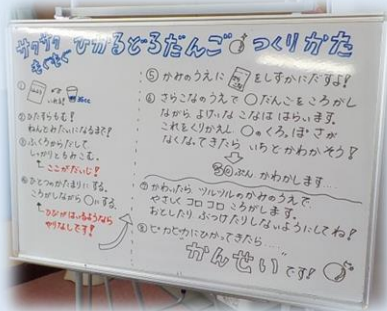 サクサク もぐもぐ ひかるどろだんご つくりかた
①
② ひたすらもむ!
ねんどみたいになるまで!
③ ふくろからだして
しっかりともみこむ。
ここがだいじ!
④ ひとつのかたまりにする。
ころがしながら○にする。
ひびがはいるようなら
やりなしです!
⑤ かみのうえに をしずかにだすよ!
⑥ さらこなのうえで○だんごをころがし
ながら よけいな こなは はらいます。
これをくりかえし
なくなってきたら いちど かわかそう!
30ぷん かわかします…
⑦ かわいたら ツルツルのかみのうえで
やさしく コロコロ ころがします。
おとしたり ぶつけたりしないようにしてね!
⑧ ピカピカにひかってきたら……
かんせいです!